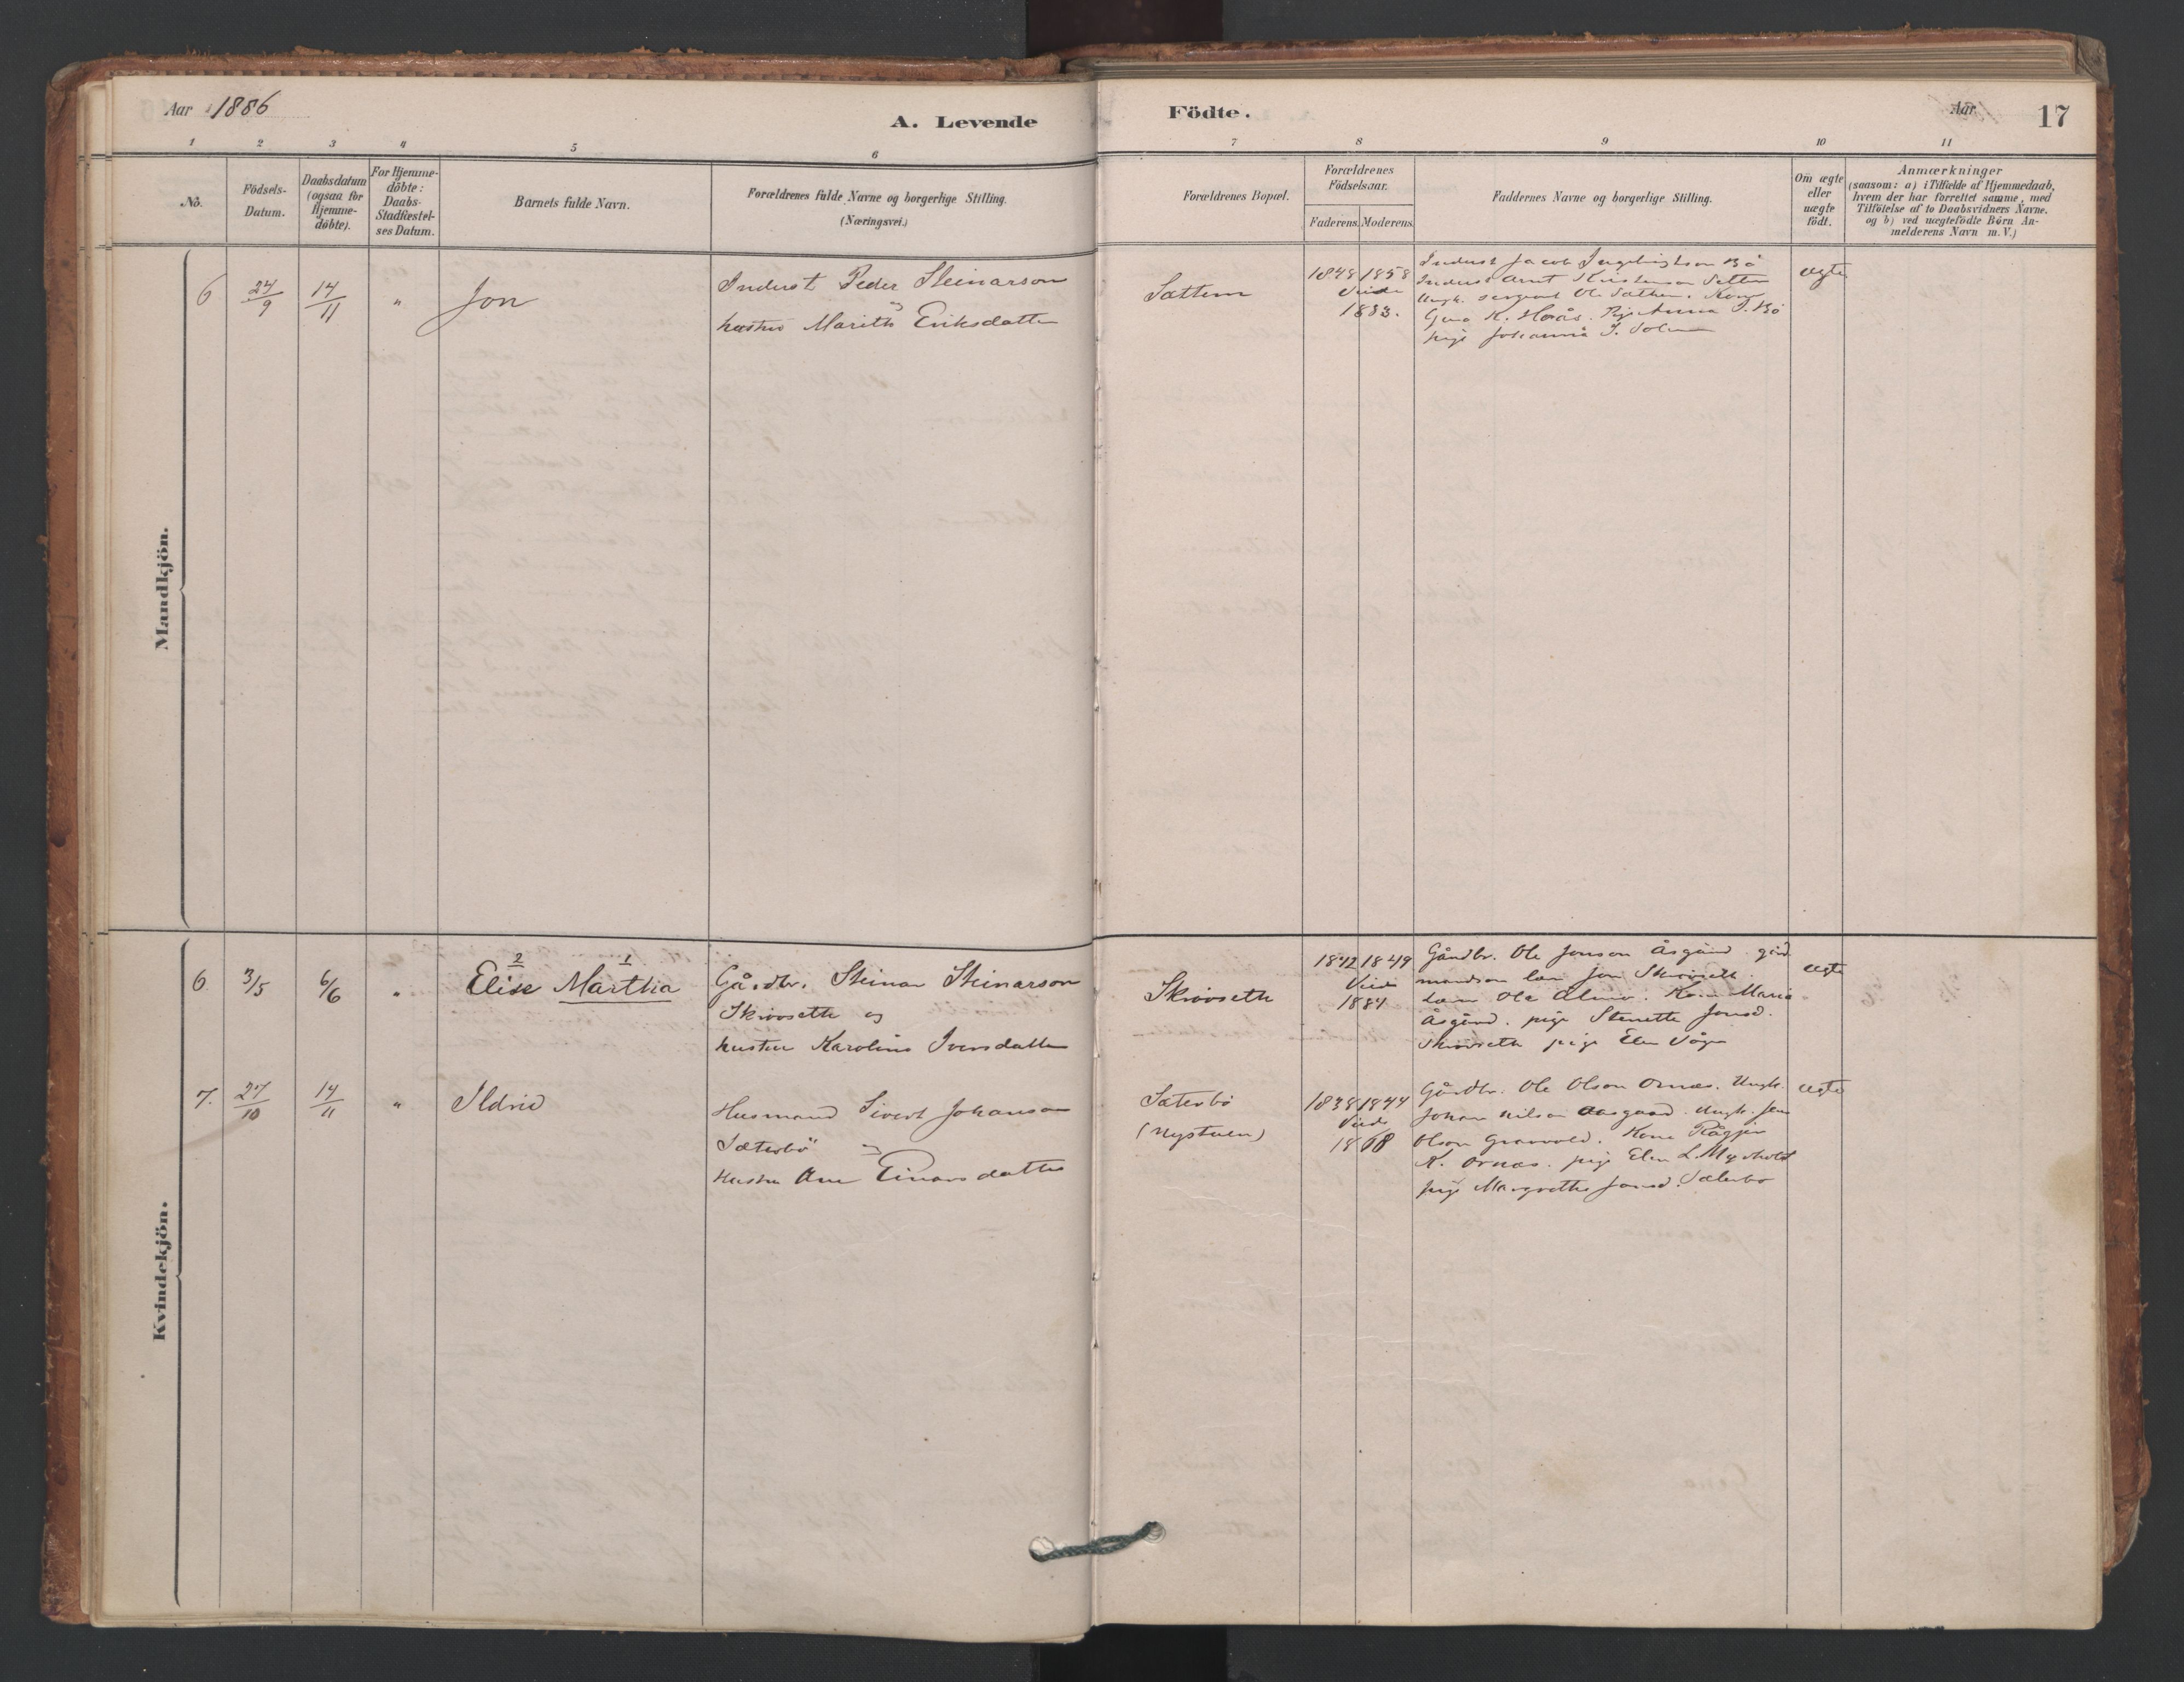 Aar 1886
A. Levende
Födte.
Aar
17
1
2
3
4
5
6
7
8
9
10
11
No.
Födsels-
Datum.
Daabsdatum
(ogsaa for
Hjemme-
döbte).
For Hjemme-
döbte:
Daabs-
Stadfæstel-
ses Datum.
Barnets fulde Navn.
Forældrenes fulde Navne og borgerlige Stilling.
(Næringsvei.)
Forældrenes Bopæl.
Forældrenes
Födselsaar.
Faderens.
Moderens.
Faddernes Navne og borgerlige Stilling.
Om ægte
eller
uægte
födt.
Anmærkninger
(saasom: a) i Tilfælde af Hjemmedaab,
hvem der har forrettet samme, med
Tilföielse af to Daabsvidners Navne.
og b) ved uægtefödte Börn An-
melderens Navn m. V.)
Mandkjön.
6 24/9 14/11 " Jon
Inderst Peder Steinarson
og
hustru Marith Eriksdatter
Sættem
1848 1858
Viede
1883.
Inderst Jacob Ingebrigtson Bö
Inderst Arnt Kristenson
Ungk. sergent Ole Sæther. Kone
K. Pige Anna
pige Johanna J.
ægte
Kvindekjön.
6 3/5 6/6 "
2 1
Elise Martha
Gårdbr. Steinar Steinarson
Skrovseth og
hustru Karoline Iversdatter
Skrovseth
1842 1849
Viede
1884
Gårdbr. Ole Jonson Åsgård. gård
mandson Jon Skrovseth.
Ole Kone Maria
Åsgård. pige Stenette Jonsd.
Skrovseth pige Elen
ægte
7. 27/10 14/11 " Ildrid
Husmand Sivert Johanson
Sæterbö og
Hustru Ane Einarsdatter
Sæterbö
(Nystuen)
1838 1844
Viede
1868
Gårdbr. Ole Olson Ornæs. Ungk.
Johan Nilson Aasgaard. Ungk. Jens
Olson Kone
K. Ornæs. pige Elen L. Myrhold
pige Margrethe Jonsd. Sæterbö
ægte